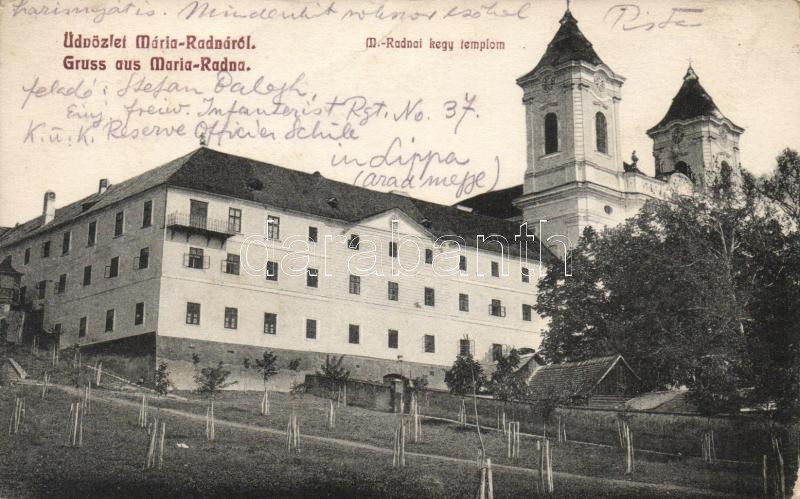 harisnyát is. Mindenkit sokszor csókol Pista
Üdvözlet Mária-Radnáról.
Gruss aus Maria-Radna.
M.-Radnai kegy templom
feladó: Stefan Balogh,
Einj. freiw. Infanterist Rgt. No. 37.
K. u. K. Reserve Officier Schule
in Lippa
(arad megye)
darabanth